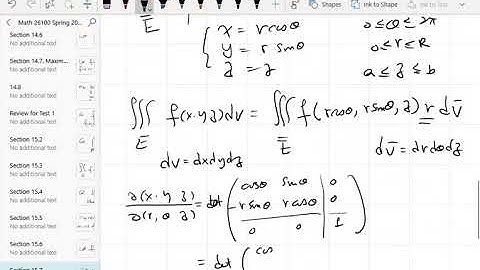 Math 26100 Spring 20...
Section 14.6
No additional text
Section 14.7, Maxim...
No additional text
14.8
No additional text
Review for Test 1
No additional text
Section 15.2
No additional text
Section 15.3
No additional text
Section 15.4
No additional text
Section 15.5
No additional text
Section 15.6
No additional text
Shapes
Ink to Shape
E
x = r cosθ
y = r sinθ
z = z
0 ≤ θ ≤ 2π
0 ≤ r ≤ R
a ≤ z ≤ b
∭_E f(x,y,z) dv = ∭_E f(r cosθ, r sinθ, z) r dV̄
dv = dxdydz
dV̄ = drdθdz
∂(x, y, z) / ∂(r, θ, z) = det ( cosθ sinθ 0
-r sinθ r cosθ 0
0 0 1 )
= det ( cos